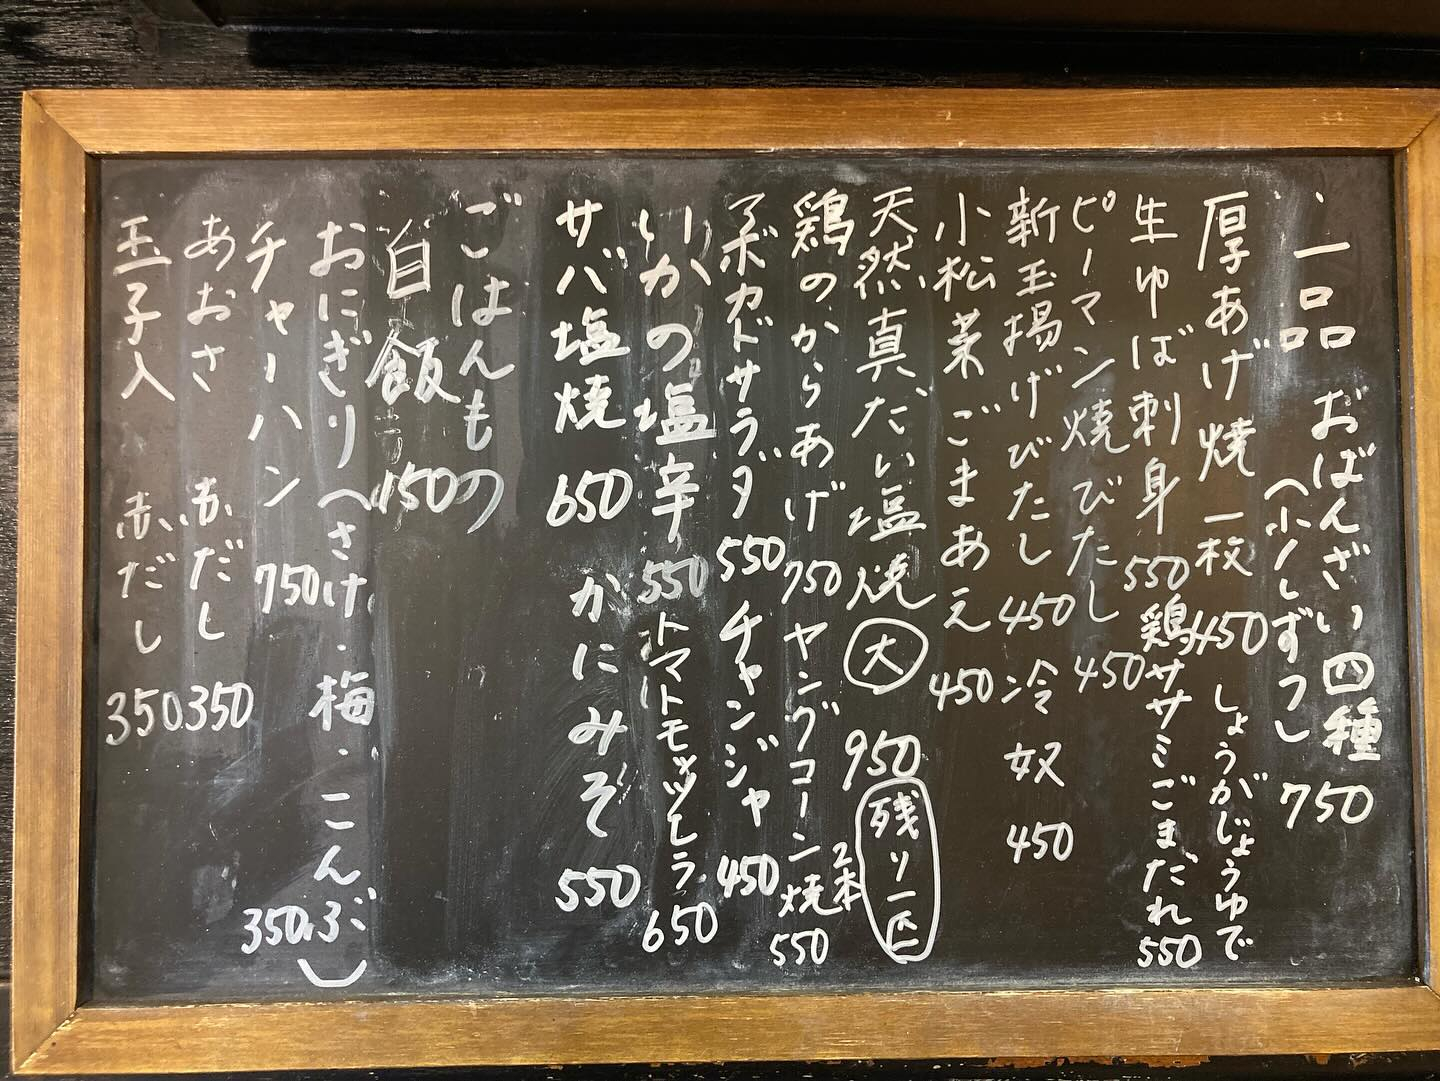 一品 おばんざい四種 750
(少しずつ)
厚あげ焼 一枚 450 しょうがじょうゆで
生ゆば刺身 550 鶏ササミごまだれ 550
ピーマン焼びたし 450
新玉揚げびたし 450 冷奴 450
小松菜ごまあえ 450
天然真だい塩焼 大 950 残り一匹
鶏のからあげ 750 ヤングコーン焼 2本 550
アボカドサラダ 550 チャンジャ 450
いかの塩辛 550 トマトモッツレラ 650
サバ塩焼 650 かにみそ 550
ごはんもの
白飯 150
おにぎり(さけ・梅・こんぶ) 350
チャーハン 750
あおさ 赤だし 350
玉子入 赤だし 350